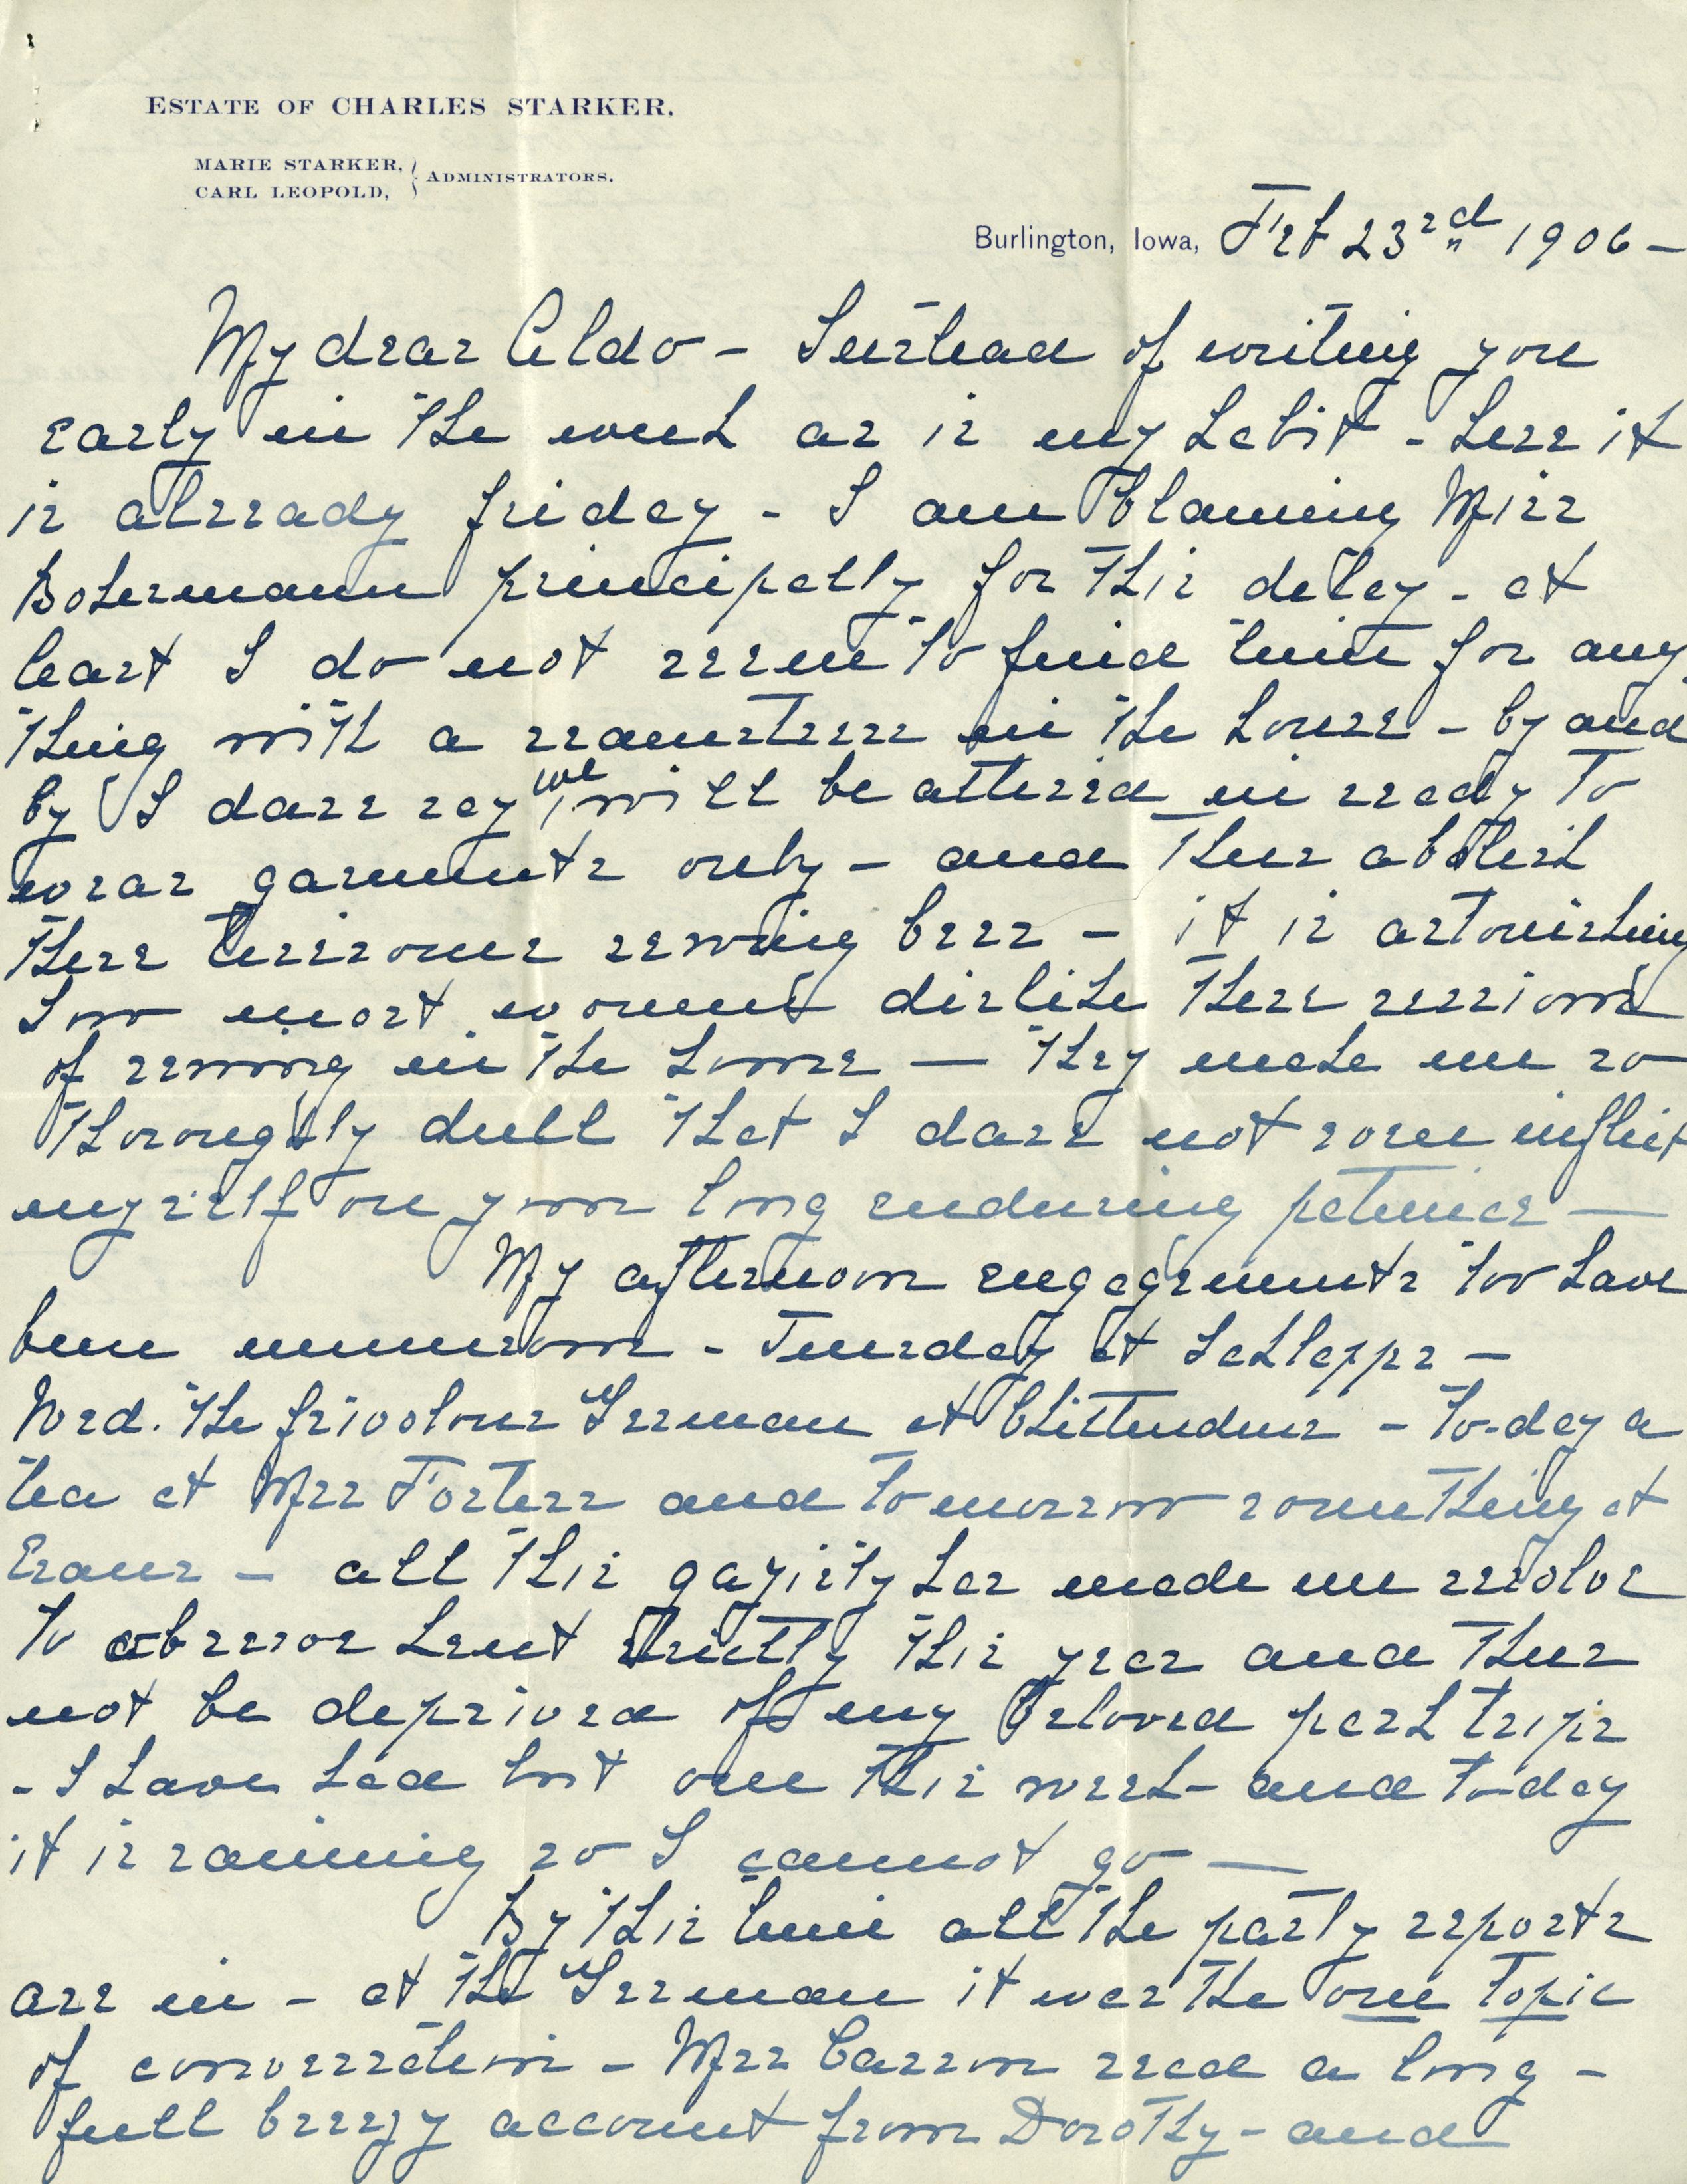 ESTATE OF CHARLES STARKER.
MARIE STARKER,
CARL LEOPOLD, } ADMINISTRATORS.
Burlington, Iowa, Feb 23rd 1906 —
My dear Aldo - Instead of writing you
early in the week as is my habit - here it
is already friday - I am blaming Miss
Bosermann principally for this delay - at
least I do not seem to find time for any
thing with a seamstress in the house - by and
by I dare say we will be attired in ready to
wear garments only - and thus abolish
these tiresome sewing bees - it is astonishing
how most women dislike these sessions
of sewing in the house — they make me so
thoroughly dull that I dare not even inflict
myself on your long enduring patience —
My afternoon engagements too have
been numerous - Tuesday at Schlapps -
Wed. the frivolous German at Chittendens - To-day a
tea at Mrs Fosters and tomorrow something at
Erans - all this gayiety has made me resolve
to observe Lent strictly this year and thus
not be deprived of my beloved park trips
- I have had but one this week - and to-day
it is raining so I cannot go —
By this time all the party reports
are in - at the German it was the one topic
of conversation - Mrs Carson read a long -
full breezy account from Dorothy - and